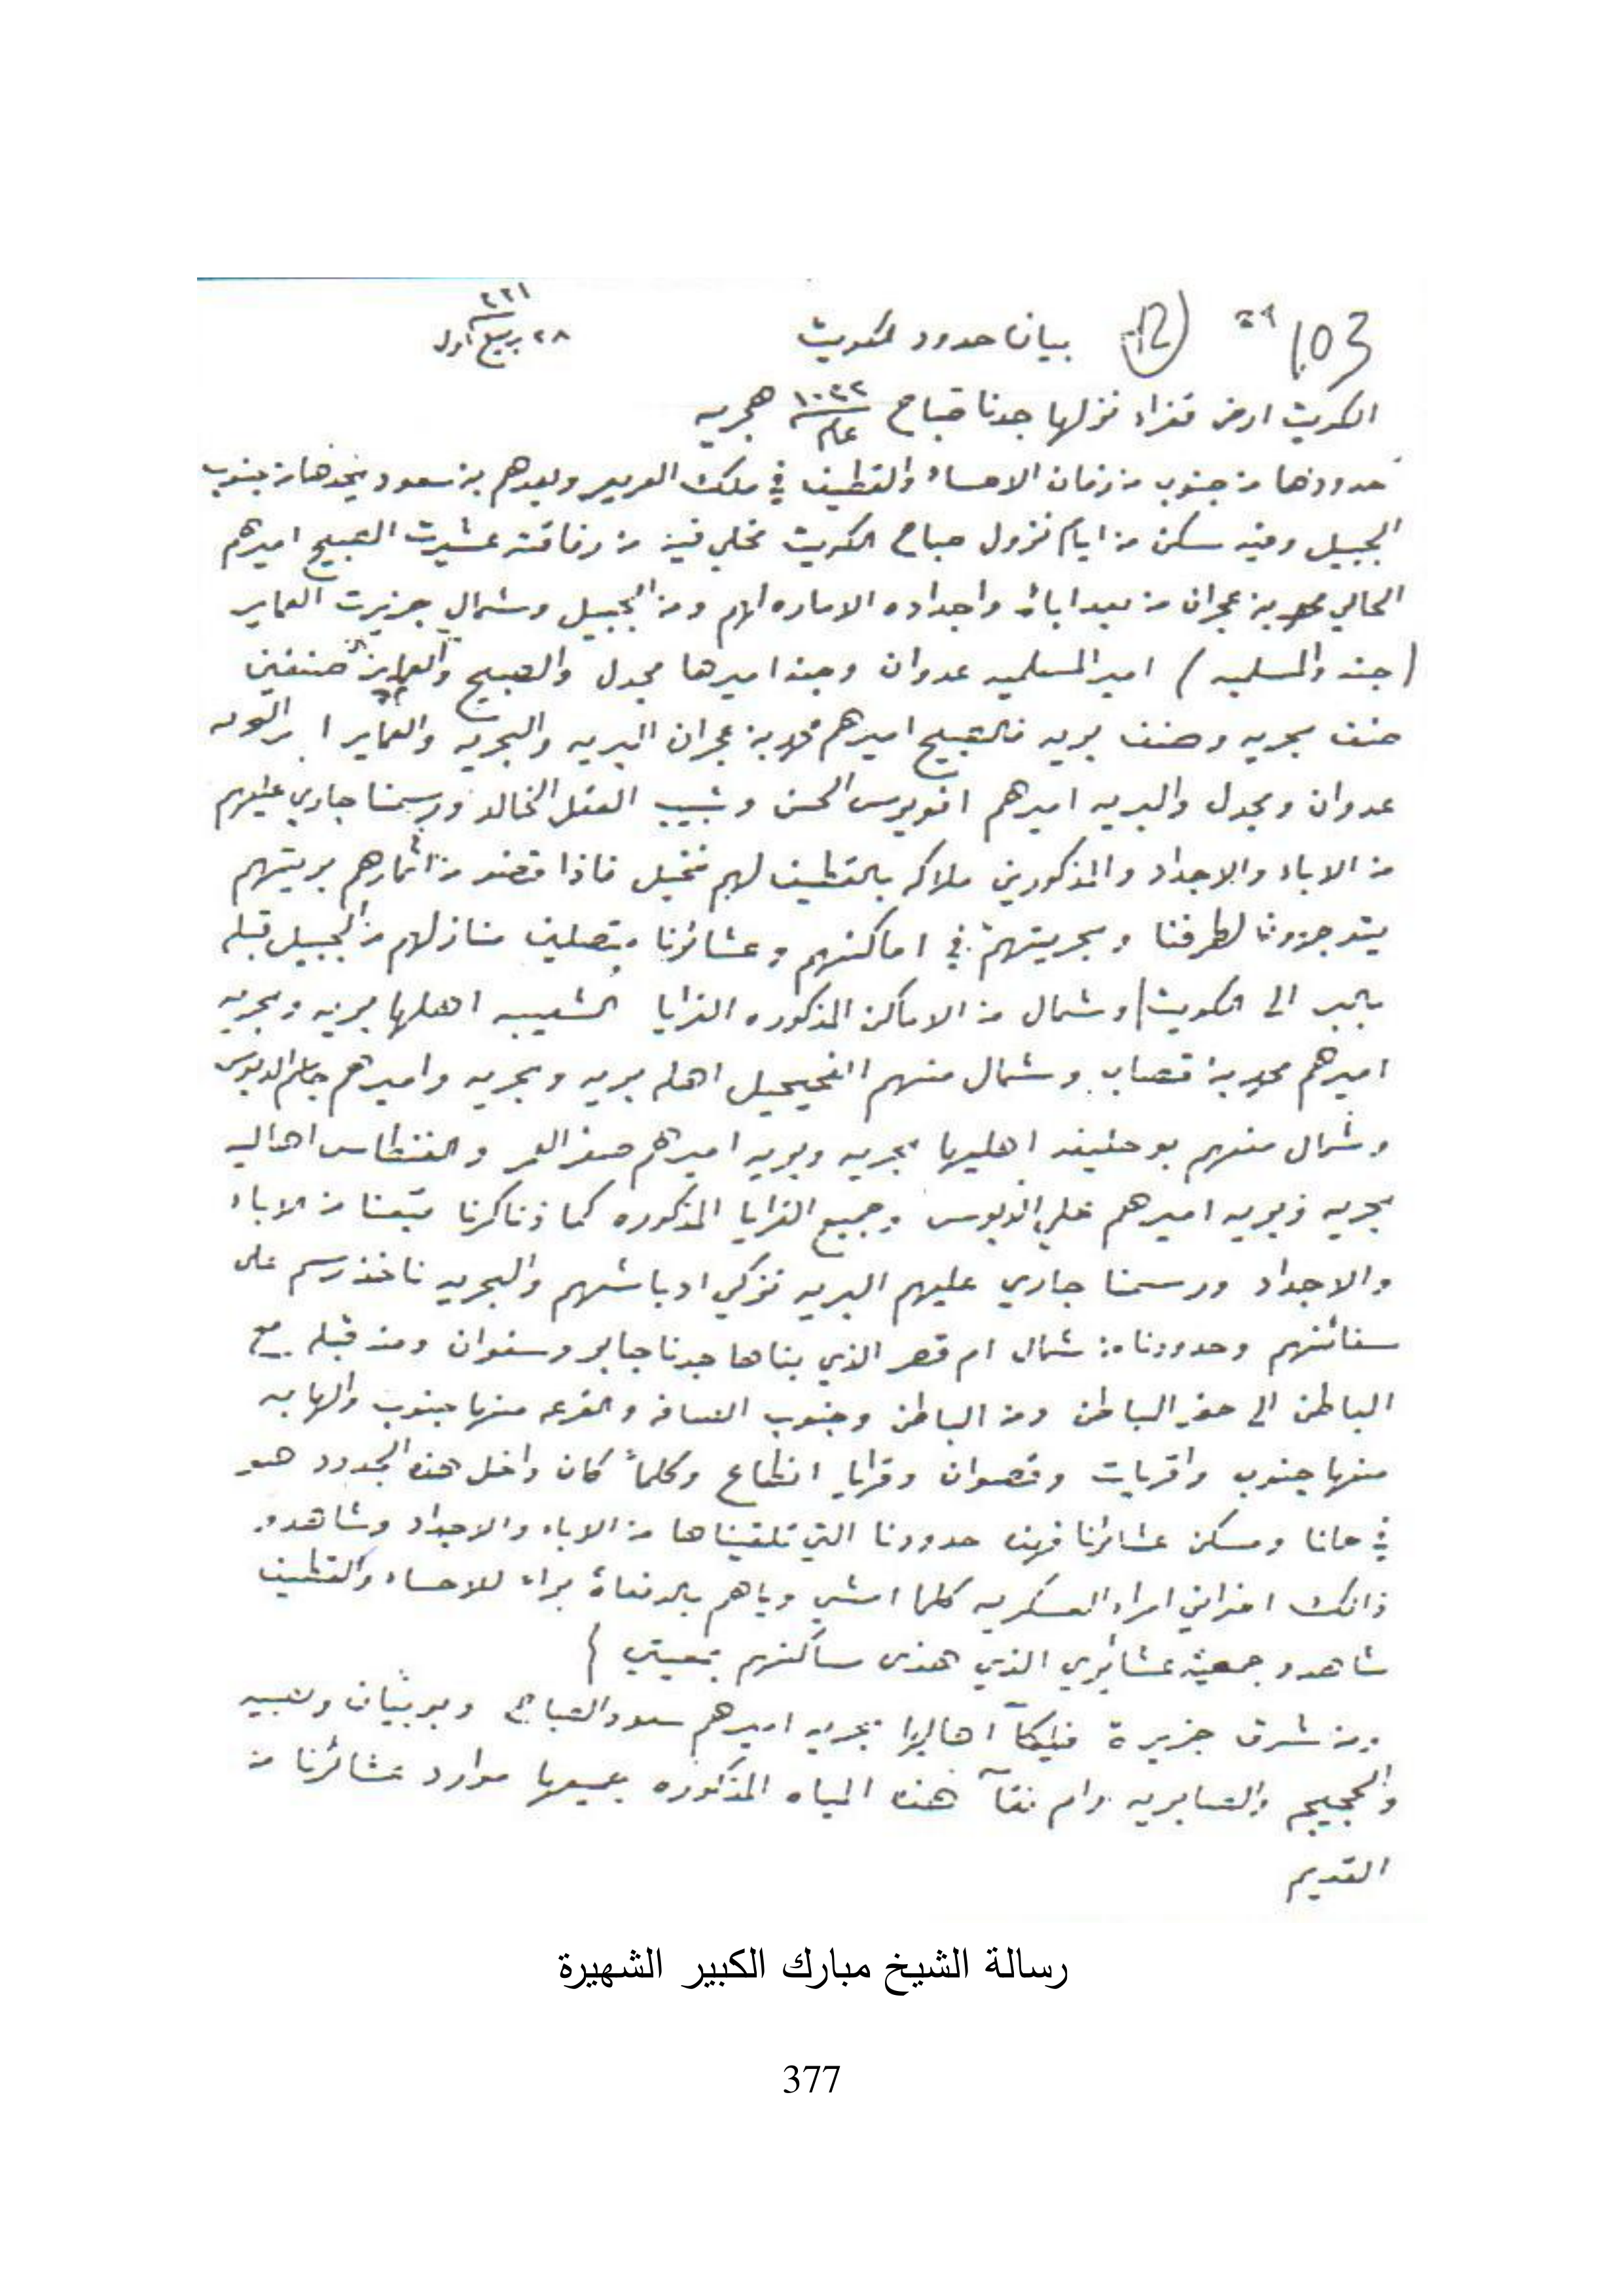 103 ٢٩ (12) بيان حدود الكويت ٢٨ ربيع اول
الكويت ارض قفراء نزلها جدنا صباح عام ١٠٢٢ هجريه
حدودها من جنوب من زمان الاحساء والقطيف في ملك العريعر وبعدهم بن سعود يحدها من جنوب
الجبيل ومنه سكن من ايام نزول صباح الكويت من رفاقته عشيرت الصبيح اميرهم
الحالي محمد بن عجران من بعد اباه واجداده الاماره لهم ومن الجبيل وشمال جزيرت العماير
(جنه والمسلميه) امير المسلميه عدوان وجنه اميرها مجدل والصبيح والعماير صنفين
صنف بحريه وصنف بريه فالصبيح اميرهم محمد بن عجران البريه والبحريه والعماير
عدوان ومجدل والبريه اميرهم الحسن وشبيب العقل الخالد ورسمنا جاري عليهم
من الاباء والاجداد والمذكورين ملاكه بالقطيف لهم نخيل فاذا من اثمارهم بريتهم
لطرفنا وبحريتهم في اماكنهم وعشائرنا متصلين منازلهم من الجبيل قبله
بالبر الى الكويت وشمال من الاماكن المذكوره القرايا الشعيبه اهلها بريه وبحريه
اميرهم محمد بن قصاب وشمال منهم الفحيحيل اهله بريه وبحريه واميرهم جاسم الدبوس
وشمال منهم بو حليفه اهليها بحريه وبريه اميرهم صقر والفنطاس اهاليه
بحريه وبريه اميرهم علي الدبوس وجميع القرايا المذكوره كما ذناكرنا تبعنا من الاباء
والاجداد ورسمنا جاري عليهم البريه نزكي ادباشهم والبحريه ناخذ رسم على
سفائنهم وحدودنا من شمال ام قصر الذي بناها جدنا جابر وسفوان ومن قبله مع
الباطن الى حفر الباطن ومن الباطن وجنوب الصافه والقرعه منها جنوب والهابه
منها جنوب واقريات وقصوان وقرايا انطاع وكلماً كان داخل هذه الحدود هو
في حانا ومسكن عشائرنا فهذه حدودنا التي تلقيناها من الاباء والاجداد وشاهدو
ذالك امراء العسكريه كلما امشي وياهم بالدفعاة براء للاحساء والقطيف
شاهدو جمعية عشائري الذي هذى ساكنهم بمعيتي
ومن شرق جزيرة فيلكآ اهاليها بحريه اميرهم سعود الصباح وبوبيان ولصبيه
والجحيم والصابريه وام نقآ هذه المياه المذكوره جميعها موارد عشائرنا من
القديم
رسالة الشيخ مبارك الكبير الشهيرة
377